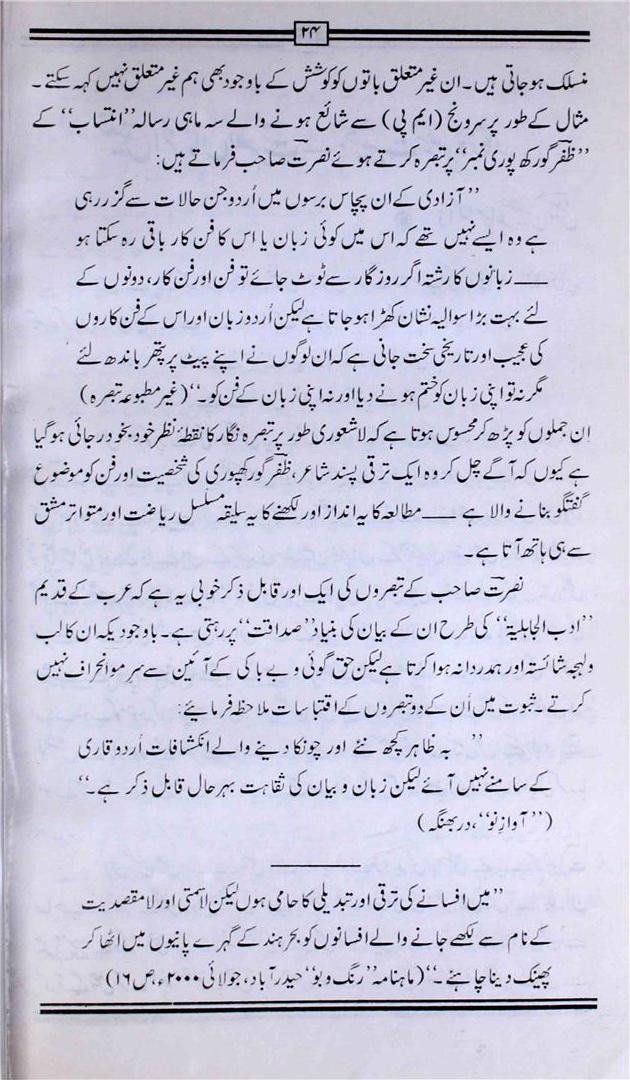 ۲۴
منسلک ہو جاتی ہیں۔ ان غیر متعلق باتوں کو کوشش کے باوجود بھی ہم غیر متعلق نہیں کہہ سکتے۔
مثال کے طور پر سرونج (ایم پی) سے شائع ہونے والے سہ ماہی رسالہ ”انتساب“ کے
”ظفر گورکھ پوری نمبر“ پر تبصرہ کرتے ہوئے نصرت صاحب فرماتے ہیں:
”آزادی کے ان پچاس برسوں میں اُردو جن حالات سے گزر رہی
ہے وہ ایسے نہیں تھے کہ اس میں کوئی زبان یا اس کا فن کار باقی رہ سکتا ہو
—— زبانوں کا رشتہ اگر روزگار سے ٹوٹ جائے تو فن اور فن کار، دونوں کے
لئے بہت بڑا سوالیہ نشان کھڑا ہو جاتا ہے لیکن اُردو زبان اور اس کے فن کاروں
کی عجیب اور تاریخی سخت جانی ہے کہ ان لوگوں نے اپنے پیٹ پر پتھر باندھ لئے
مگر نہ تو اپنی زبان کو ختم ہونے دیا اور نہ اپنی زبان کے فن کو۔“ (غیر مطبوعہ تبصرہ)
اِن جملوں کو پڑھ کر محسوس ہوتا ہے کہ لاشعوری طور پر تبصرہ نگار کا نقطۂ نظر خود بخود رجائی ہو گیا
ہے کیوں کہ آگے چل کر وہ ایک ترقی پسند شاعر، ظفر گورکھپوری کی شخصیت اور فن کو موضوع
گفتگو بنانے والا ہے —— مطالعہ کا یہ انداز اور لکھنے کا یہ سلیقہ مسلسل ریاضت اور متواتر مشق
سے ہی ہاتھ آتا ہے۔
نصرت صاحب کے تبصروں کی ایک اور قابل ذکر خوبی یہ ہے کہ عرب کے قدیم
”ادب الجاہلیۃ“ کی طرح ان کے بیان کی بنیاد ”صداقت“ پر رہتی ہے۔ باوجودیکہ ان کا لب
ولہجہ شائستہ اور ہمدردانہ ہوا کرتا ہے لیکن حق گوئی و بے باکی کے آئین سے سرِ مو انحراف نہیں
کرتے۔ ثبوت میں اُن کے دو تبصروں کے اقتباسات ملاحظہ فرمائیے:
”بہ ظاہر کچھ نئے اور چونکا دینے والے انکشافات اُردو قاری
کے سامنے نہیں آئے لیکن زبان و بیان کی ثقاہت بہرحال قابل ذکر ہے۔“
(”آوازِ نو“، دربھنگہ)
”میں افسانے کی ترقی اور تبدیلی کا حامی ہوں لیکن لاسمتی اور لامقصدیت
کے نام سے لکھے جانے والے افسانوں کو بحر ہند کے گہرے پانیوں میں اٹھا کر
پھینک دینا چاہئے۔“ (ماہنامہ ”رنگ و بو“ حیدرآباد، جولائی ۲۰۰۰ء، ص ۱۶)